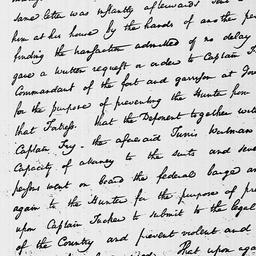 same letter was instantly afterwards
him at his house by the hands of another
finding the transaction admitted of no delay
gave a written request or order to Captain
Commandant of the fort and garrison at
for the purpose of preventing the Hunter from
that Fortress. That the Deponent together
Captain Fry - the aforesaid Tunis Wortman
Capacity of attorney to the suits and
persons went on board the federal barge and
again to the Hunter for the purpose of
upon Captain Tucker to submit to the legal
of the Country and prevent violent and
That upon